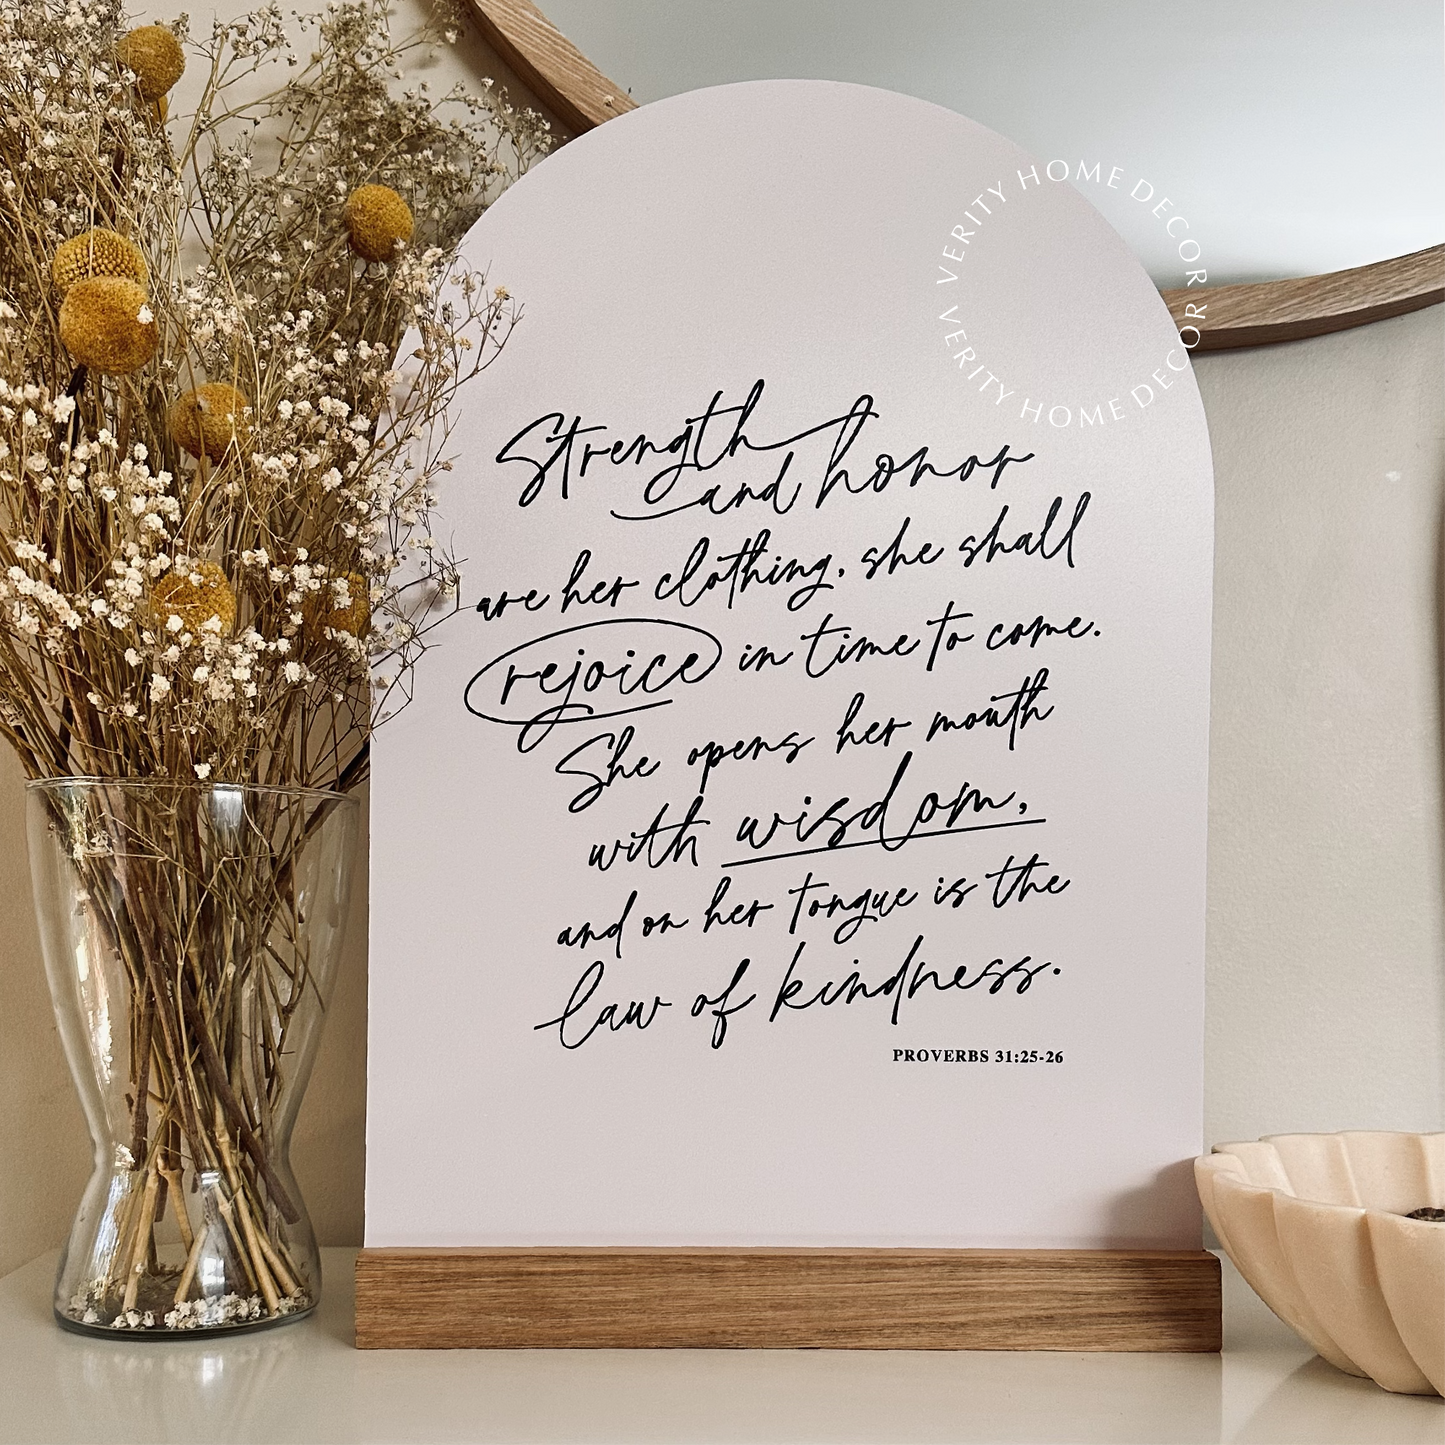 VERITY HOME DECOR
VERITY HOME DECOR
Strength
and honor
are her clothing, she shall
rejoice in time to come.
She opens her mouth
with wisdom,
and on her tongue is the
law of kindness.
PROVERBS 31:25-26